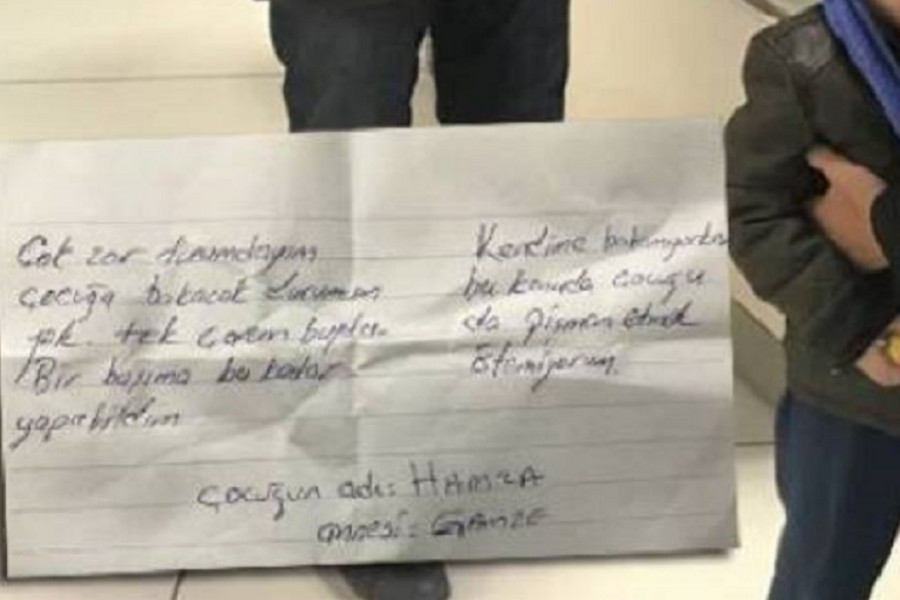 Çok zor durumdayım
çocuğa bakacak durumum
yok. tek çarem buydu.
Bir başıma bu kadar
yapabildim
Kendime bakamıyorken
bu konuda çocuğu
da pişman etmek
istemiyorum.
Çocuğun adı: HAMZA
annesi: GAMZE